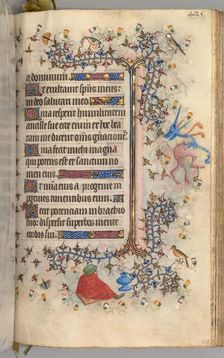 a dominum
Et exultauit sp̄us meus:
in deo salutari meo
Quia respexit humilitatem
ancille sue ecce enim ex hoc bea
tam me dicent om̄s gn̄acione
Quia fecit michi magna
qui potens est et sanctum no
men eius
Et misericordia eius a progenie in
progenies timentibus eum
Fecit potenciam in brachio
suo: dispersit superbos mente
cordis sui